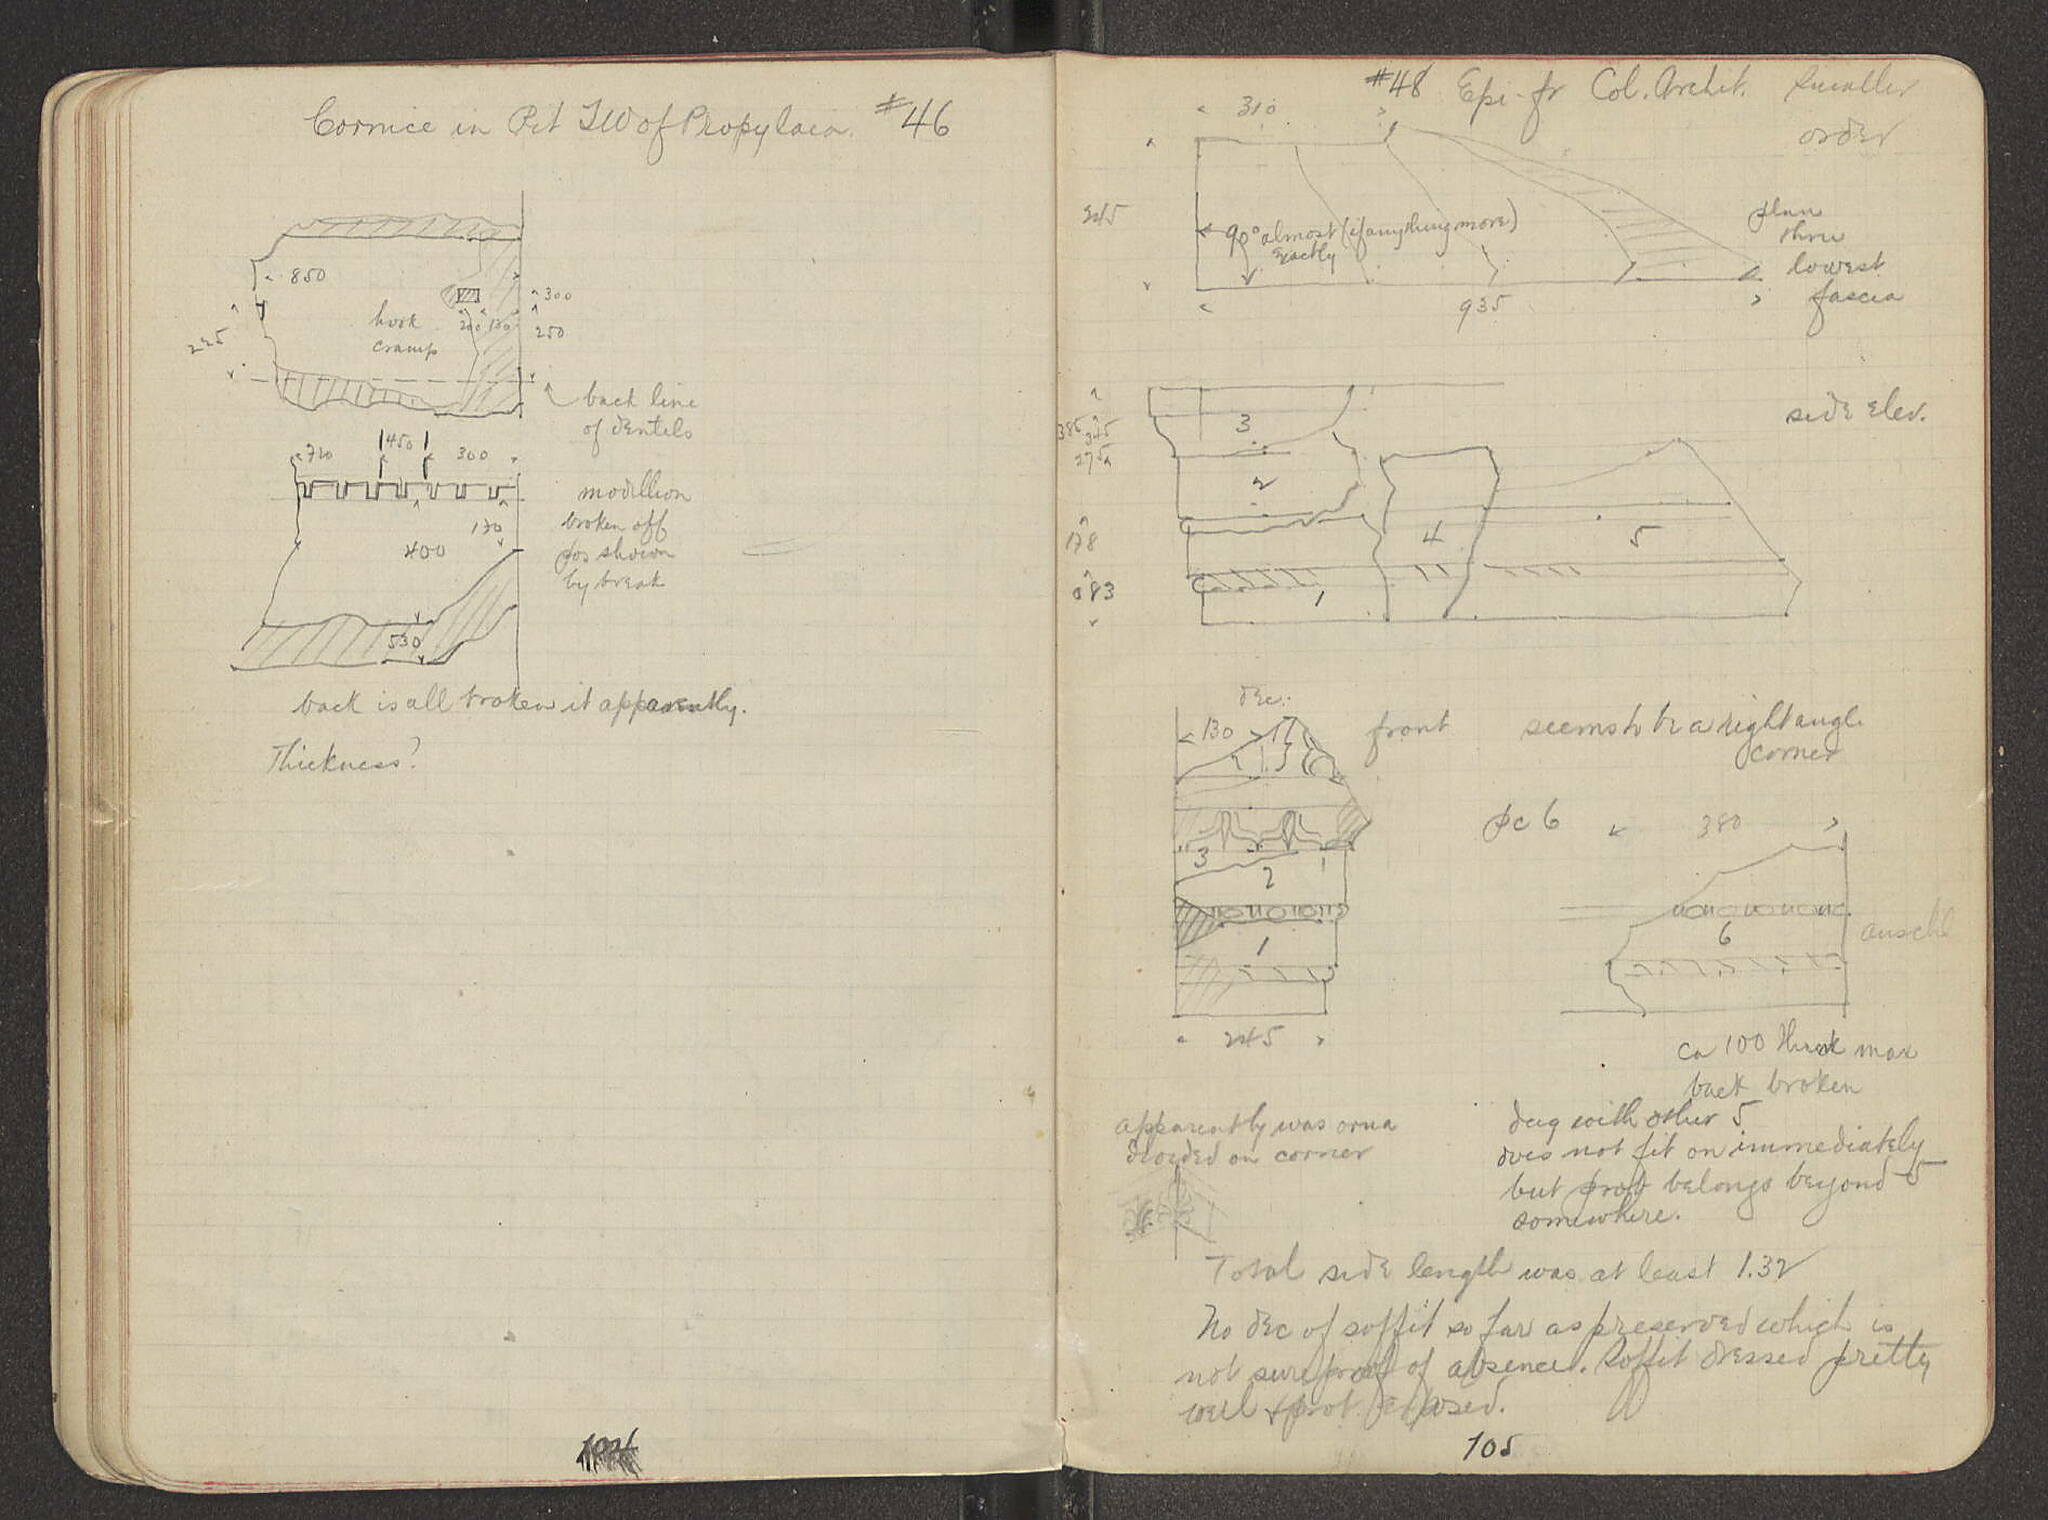 Cornice in Pit SW of Propylaea. #46
850
hook
cramp
200 130
300
250
225
back line
of dentils
720
450
300
modillion
broken off
pos shown
by break
130
400
530
back is all broken it apparently.
Thickness?
104
#48 Epi-fr Col. Archit. Smaller
order
310
245
90° almost (if anything more)
exactly
935
plan
thru
lowest
fascia
side elev.
385
345
275
178
083
3
2
4
5
1
dec:
130
front
seems to be a right angle
corner
3
2
1
245
pc 6
380
6
anschl
ca 100 thick max
back broken
dug with other 5
does not fit on immediately
but prob belongs beyond 5
somewhere.
apparently was orna
divided on corner
Total side length was at least 1.32
No dec of soffit so far as preserved which is
not sure proof of absence. Soffit dressed pretty
well & prot. exposed.
105